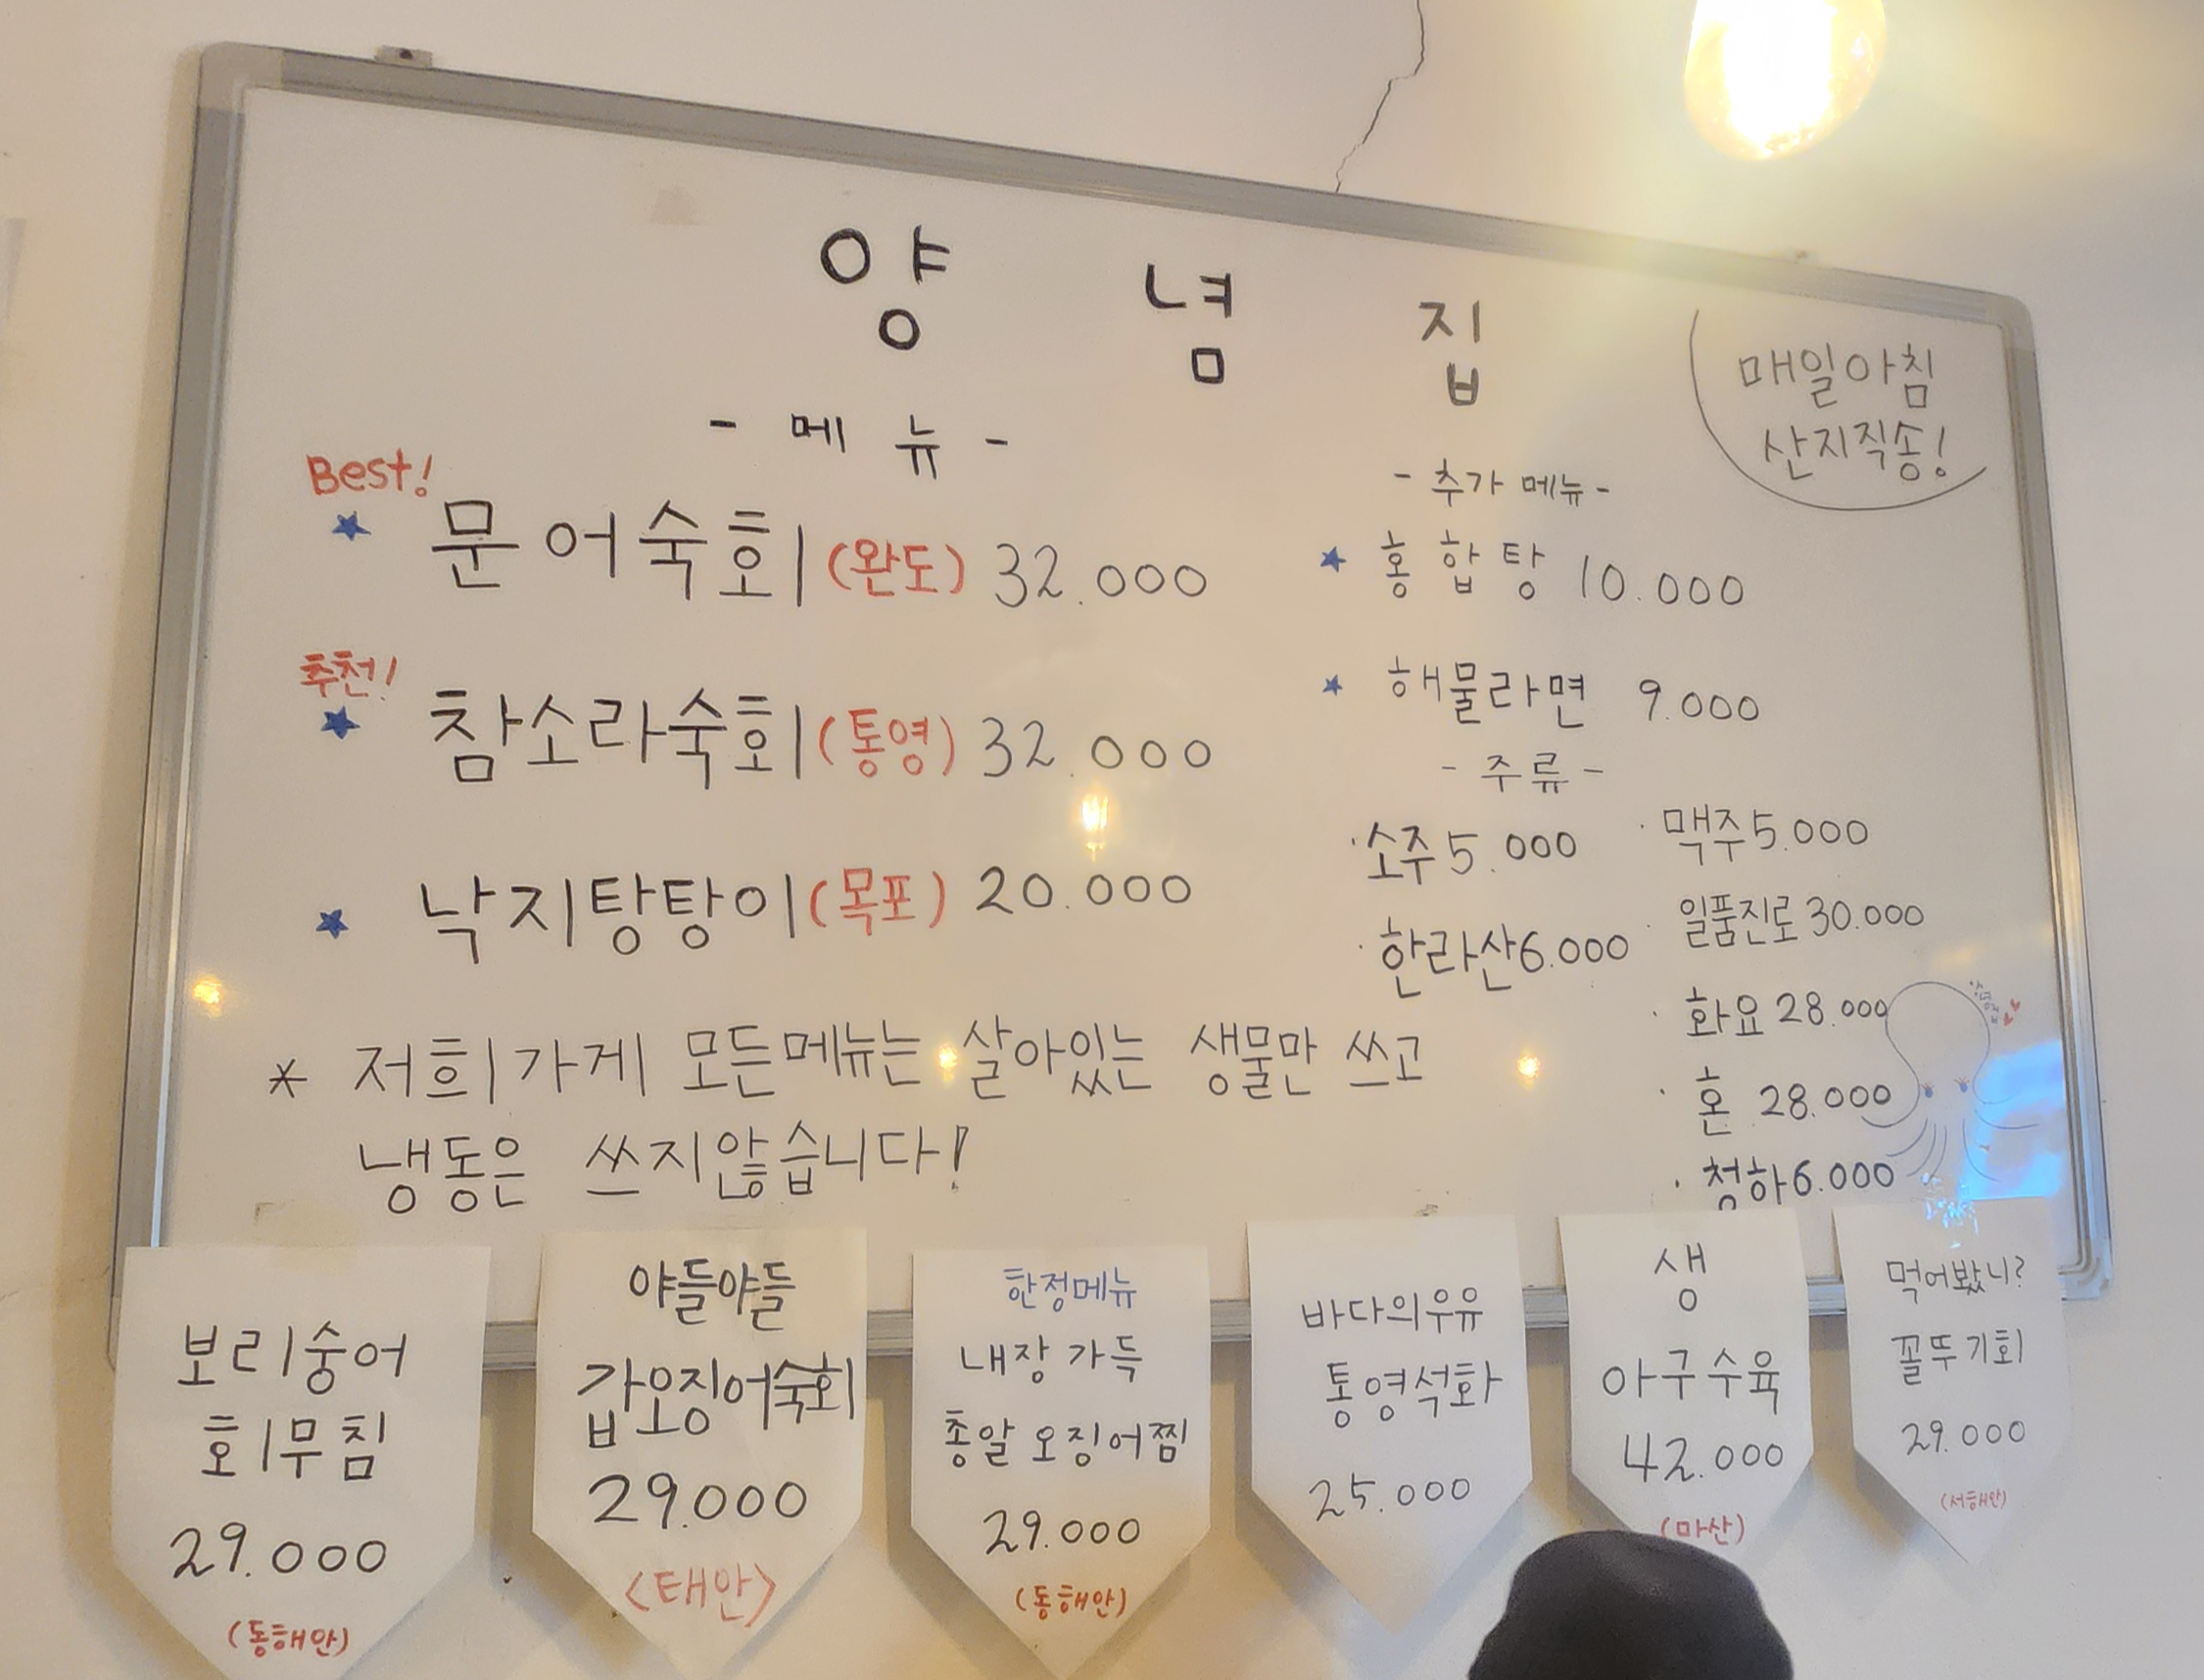 양 념 집
매일아침
산지직송!
- 메 뉴 -
Best!
★ 문어숙회 (완도) 32.000
추천!
★ 참소라숙회 (통영) 32.000
★ 낙지탕탕이 (목포) 20.000
* 저희가게 모든메뉴는 살아있는 생물만 쓰고
냉동은 쓰지않습니다!
- 추가 메뉴 -
★ 홍합탕 10.000
★ 해물라면 9.000
- 주류 -
· 소주 5.000
· 맥주 5.000
· 한라산 6.000
· 일품진로 30.000
· 화요 28.000
· 혼 28.000
· 청하 6.000
보리숭어
회무침
29.000
(동해안)
야들야들
갑오징어숙회
29.000
<태안>
한정메뉴
내장 가득
총알 오징어찜
29.000
(동해안)
바다의우유
통영석화
25.000
생
아구수육
42.000
(마산)
먹어봤니?
꼴뚜기회
29.000
(서해안)